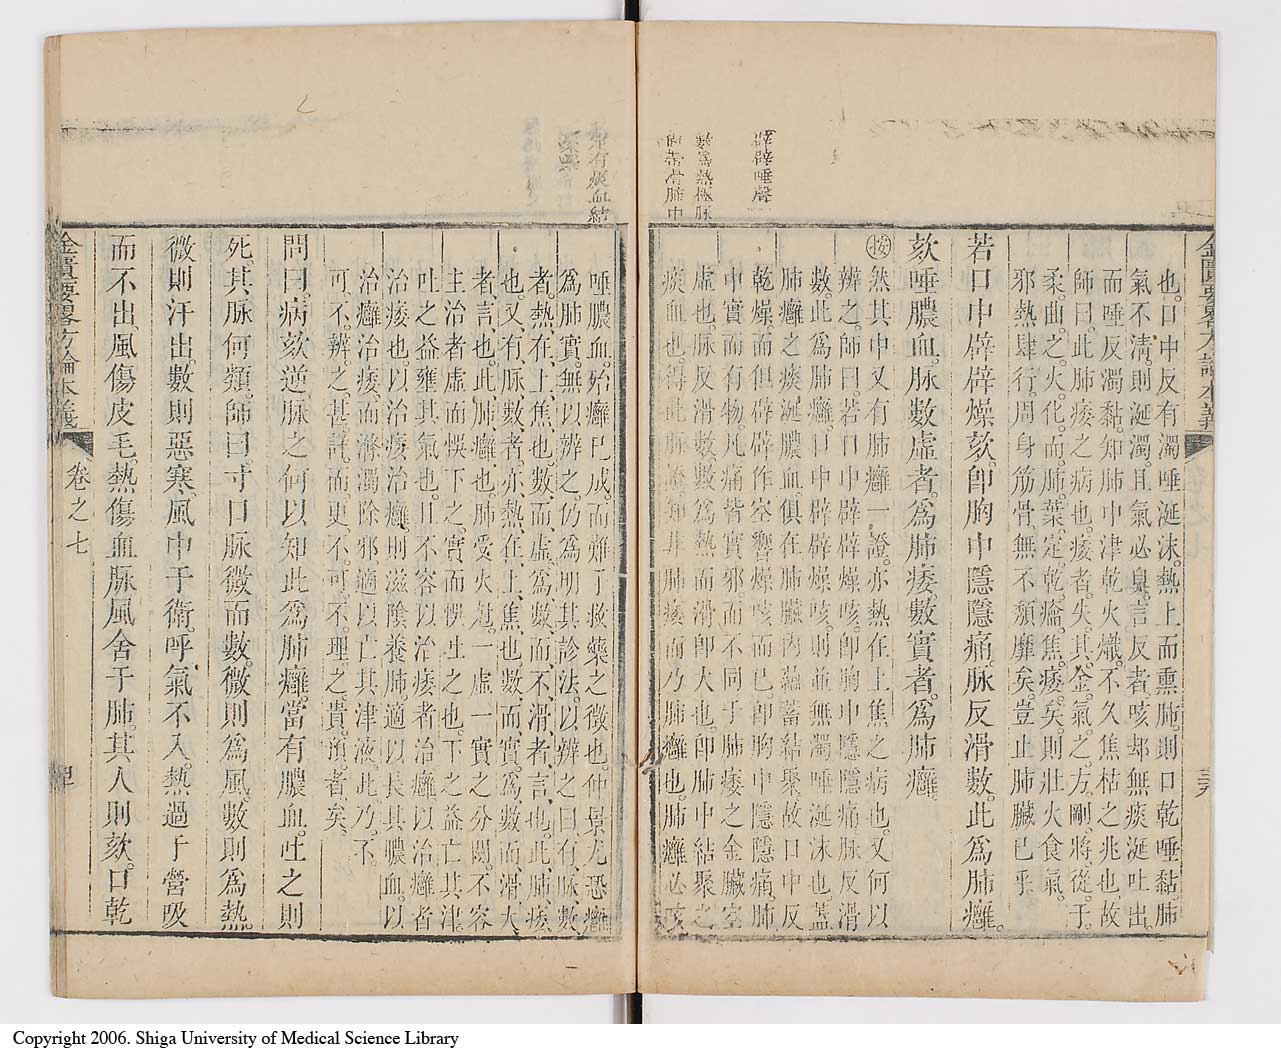 金匱要畧方論本義
三九
也。口中反有濁唾涎沫。熱上而熏肺。則口乾唾黏。肺
氣不清則涎濁。且氣必臭。言反者。咳却無痰涎吐出。
而唾反濁黏。知肺中津乾火熾。不久焦枯之兆也。故
師曰。此肺痿之病也。痿者。失其金氣之方剛。將從于
柔曲之火化。而肺葉定乾瘉焦痿矣。則壯火食氣。
邪熱肆行。周身筋骨無不頹靡矣。豈止肺臟已乎。
若口中辟辟燥欬。卽胸中隱隱痛。脉反滑數。此爲肺癰。
欬唾膿血。脉數虛者。爲肺痿。數實者。爲肺癰。
按然其中又有肺癰一證。亦熱在上焦之病也。又何以
辨之。師曰。若口中辟辟燥咳。卽胸中隱隱痛。脉反滑
數。此爲肺癰。口中辟辟燥咳。則並無濁唾涎沫也。蓋
肺癰之痰涎膿血。俱在肺臟內蘊蓄結聚。故口中反
乾燥。而但辟辟作空響燥咳而已。卽胸中隱隱痛。肺
中實而有物。凡痛皆實邪。而不同于肺痿之金臟空
虛也。脉反滑數。數爲熱而滑卽大也。卽肺中結聚之
痰血也。得此脉證。知非肺痿而乃肺癰也。肺癰必咳
辟辟唾聲
唾膿血。殆癰已成。而難于救藥之徵也。仲景尤恐癰
爲肺實。無以辨之。仍爲明其診法。以辨之曰。有脉數
者。熱在上焦也。數而虛。爲數而不滑者言也。此肺痿
也。又有脉數者。亦熱在上焦也。數而實。爲數而滑大
者言也。此肺癰也。肺受火尅。一虛一實之分關。不容
主治者虛而悞下之。實而悞吐之也。下之益亡其津。
吐之益壅其氣也。且不容以治痿者治癰。以治癰者
治痿也。以治痿治癰。則滋陰養肺。適以長其膿血。以
治癰治痿。而滌濁除邪。適以亡其津液。此乃不
可不辨之甚詳。而更不可不理之貴預者矣。
問曰。病欬逆。脉之何以知此爲肺癰。當有膿血。吐之則
死。其脉何類。師曰。寸口脉微而數。微則爲風。數則爲熱。
微則汗出。數則惡寒。風中于衛。呼氣不入。熱過于營。吸
而不出。風傷皮毛。熱傷血脉。風舍于肺。其人則欬。口乾
金匱要畧方論本義
卷之七
Copyright 2006. Shiga University of Medical Science Library